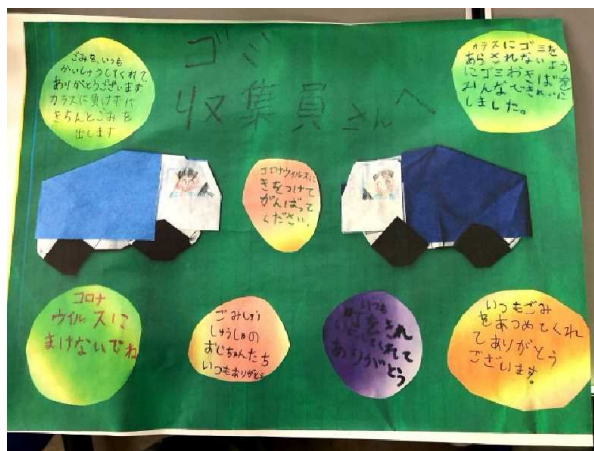 ゴミ
収集員さんへ
ごみを、いつも
かいしゅうしてくれて
ありがとうございます
カラスに負けずに
きちんとごみを
出します
カラスにゴミを
あらされないよう
にゴミおきばを
みんなできれいに
しました。
コロナウイルスに
きをつけて
がんばって
ください。
コロナ
ウイルスに
まけないでね
ごみしゅう
しゅうしゃの
おじちゃんたち
いつもありがとう
いつも
くれて
ありがとう
いつもごみ
をあつめてくれ
てありがとう
ございます。